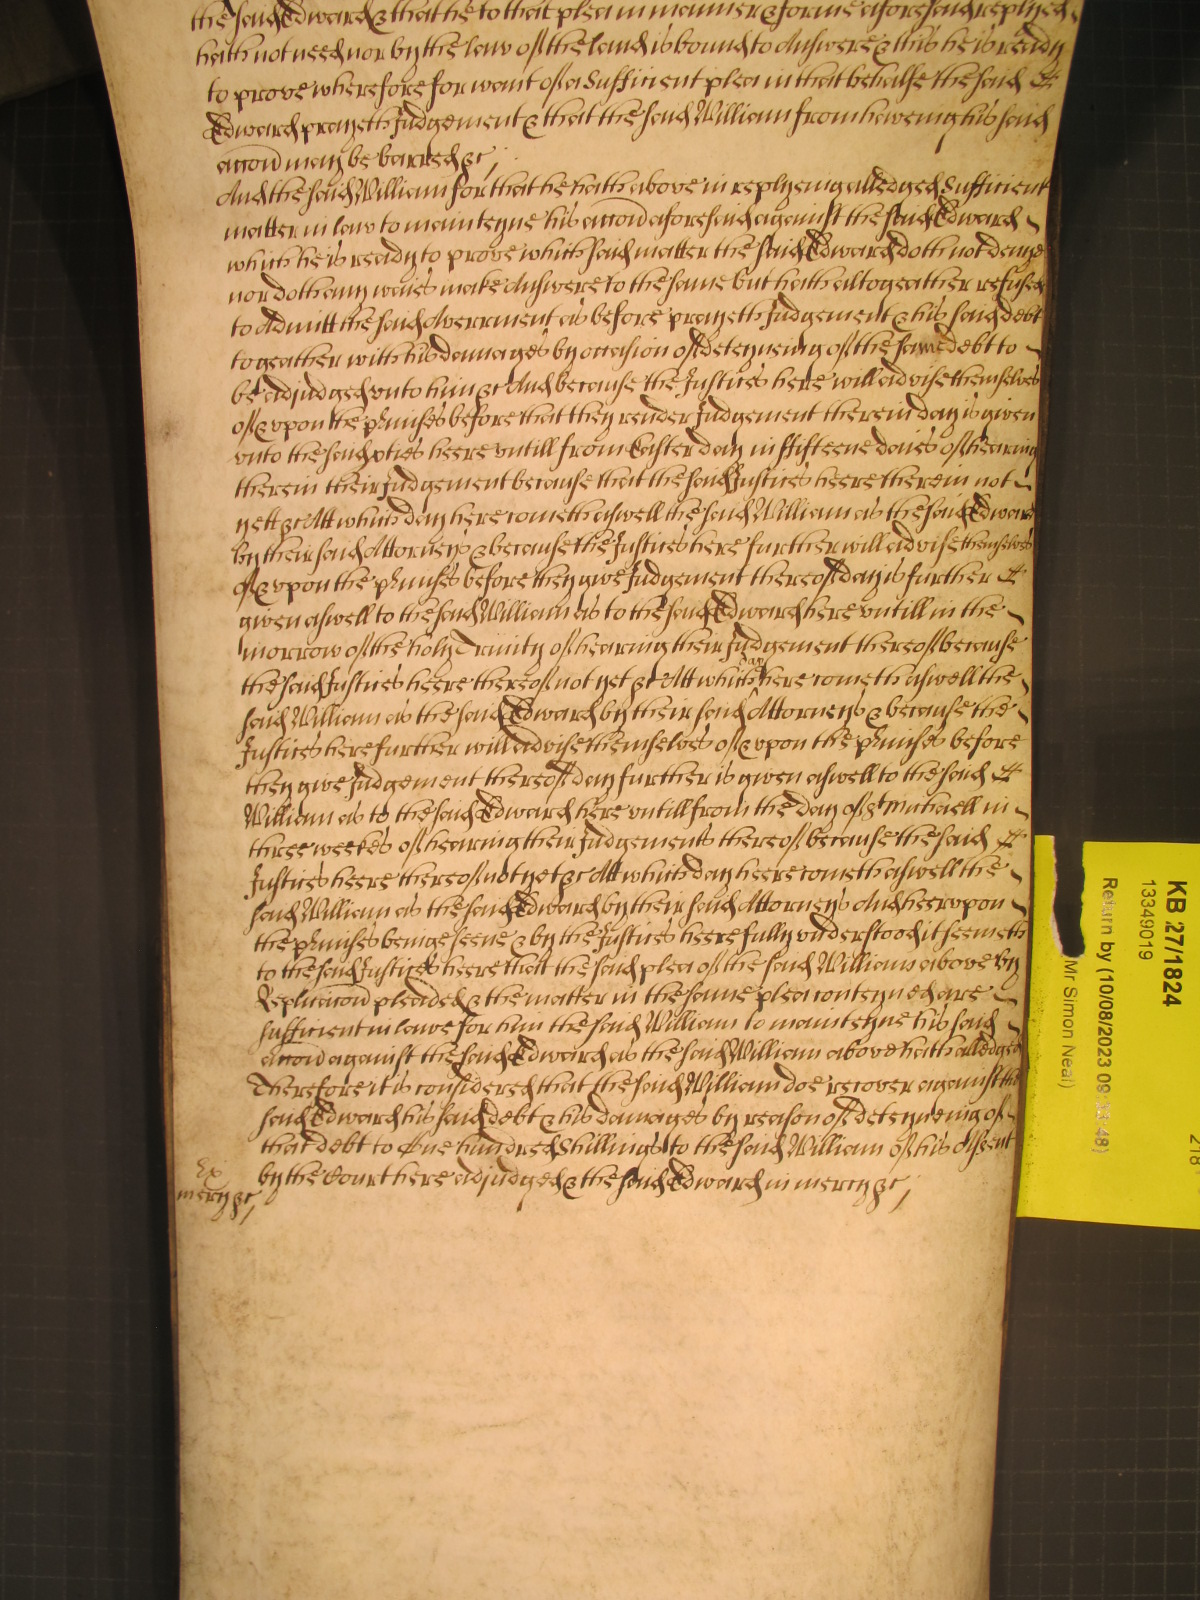 the said Edward & that he to that plea in manner & forme aforesaid replyed
hath not need nor by the law of the land is bound to Answere & this he is ready
to prove wherefore for want of a Sufficient plea in that behalfe the said
Edward prayeth Judgement & that the said William from haveing his said
accon may be barred &c
And the said William for that he hath above in replyeing alledged Sufficient
matter in law to mainteyne his accon aforesaid against the said Edward
which he is ready to prove which said matter the said Edward doth not deny
nor doth any waies make Answere to the same but hath altogeather refused
to Admitt the said Averrment as before prayeth Judgement & his said debt
togeather with his damages by occasion of deteyneing of the same debt to
be adjudged unto him &c And because the Justices here will advise themselves
of & upon the p'mises before that they render Judgement therein day is given
unto the said pties heere untill from Easter day in fifteene daies of heareing
therein their Judgement because that the said Justices heere therein not
yett &c Att which day here cometh aswell the said William as the said Edward
by their said Attorneys & because the Justices here further will advise themselves
of & upon the p'mises before they give Judgement thereof day is further
given aswell to the said William as to the said Edward here untill in the
morrow of the holy Trinity of hearing their Judgement thereof because
the said Justices heere thereof not yet &c Att which day here cometh aswell the
said William as the said Edward by their said Attorneys & because the
Justices here further will advise themselves of & upon the p'mises before
they give Judgement thereof day further is given aswell to the said
William as to the said Edward here untill from the day of St Michaell in
three weekes of hearing their Judgements thereof because the said
Justices heere thereof not yet &c Att which day heere cometh aswell the
said William as the said Edward by their said Attorneys And heerupon
the p'mises being seene & by the Justices heere fully understood it seemeth
to the said Justices heere that the said plea of the said William above by
Replicacon pleaded & the matter in the same plea conteyned are
sufficient in lawe for him the said William to mainteyne his said
accon against the said Edward as the said William above hath alledged
Therefore it is considered that the said William doe recover against the
said Edward his said debt & his damages by reason of deteyneing of
that debt to One hundred Shillings to the said William of his Assent
by the Court here adjudged & the said Edward in mercy &c
Ex
mercy &c
KB 27/1824
13349019
Return by (10/08/2023 09:
48)
Mr Simon Neal)
218